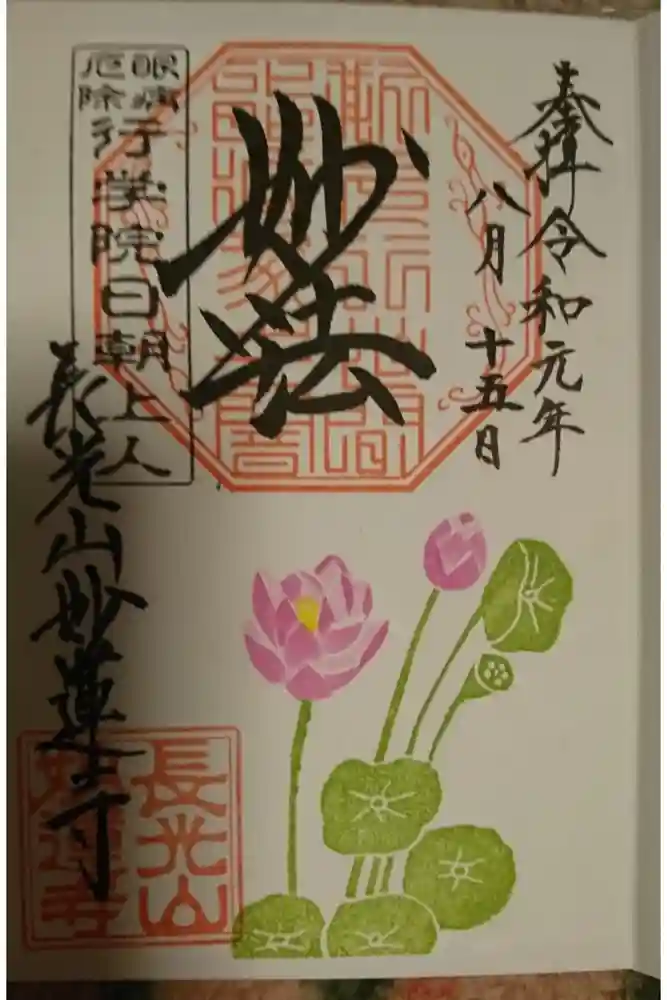 奉拝 令和元年
八月十五日
妙法
眼病
厄除
行学院日朝上人
長光山妙蓮寺
長光山
妙蓮寺